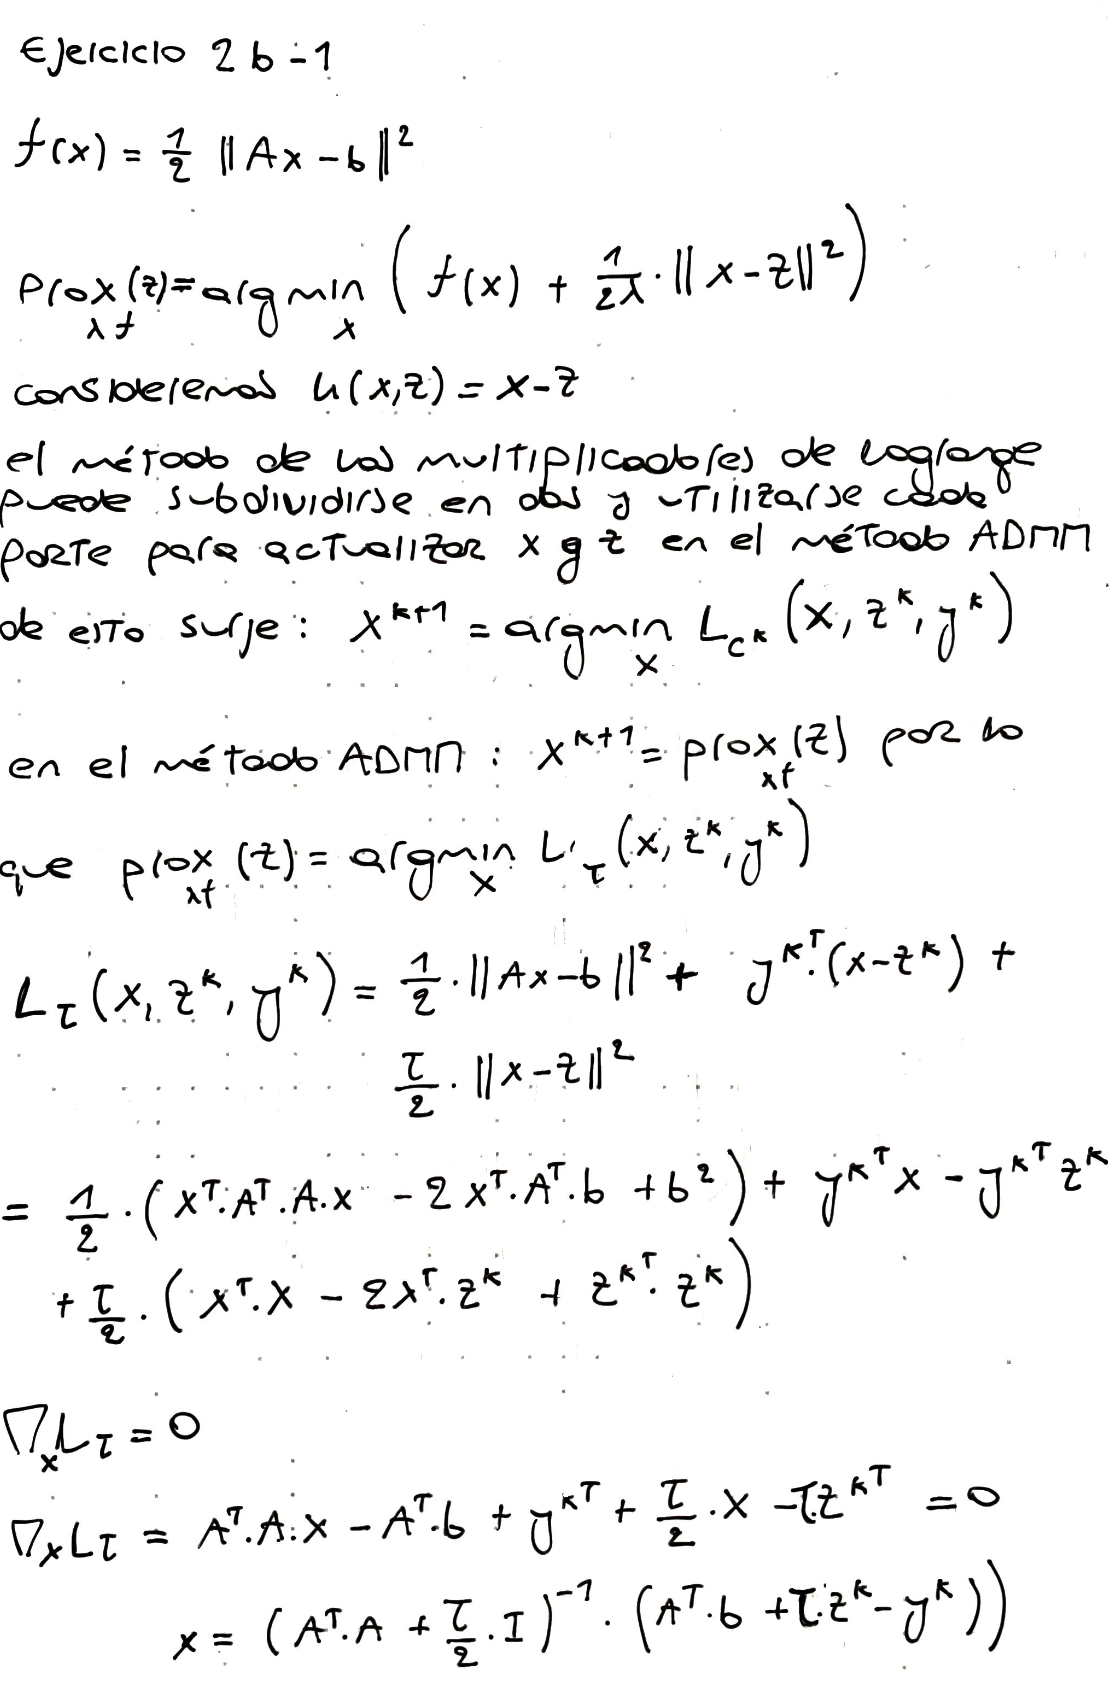 Ejercicio 2b-1
f(x) = 1/2 ||Ax-b||²
Prox_λf(z) = argmin_x ( f(x) + 1/2λ · ||x-z||² )
consideremos h(x,z) = x-z
el método de los multiplicadores de lagrange
puede subdividirse en dos y utilizarse cada
parte para actualizar x y z en el método ADMM
de esto surje: x^{k+1} = argmin_x L_{c^k} (x, z^k, y^k)
en el método ADMM : x^{k+1} = prox_λf(z) por lo
que prox_λf(z) = argmin_x L_τ (x, z^k, y^k)
L_τ (x, z^k, y^k) = 1/2 · ||Ax-b||² + y^{kT} · (x-z^k) +
τ/2 · ||x-z||²
= 1/2 · ( x^T · A^T · A · x - 2 x^T · A^T · b + b² ) + y^{kT} x - y^{kT} z^k
+ τ/2 · ( x^T · x - 2x^T · z^k + z^{kT} · z^k )
∇_x L_τ = 0
∇_x L_τ = A^T · A · x - A^T · b + y^{kT} + τ/2 · x - τ · z^{kT} = 0
x = ( A^T · A + τ/2 · I )^{-1} · ( A^T · b + τ · z^k - y^k ) )